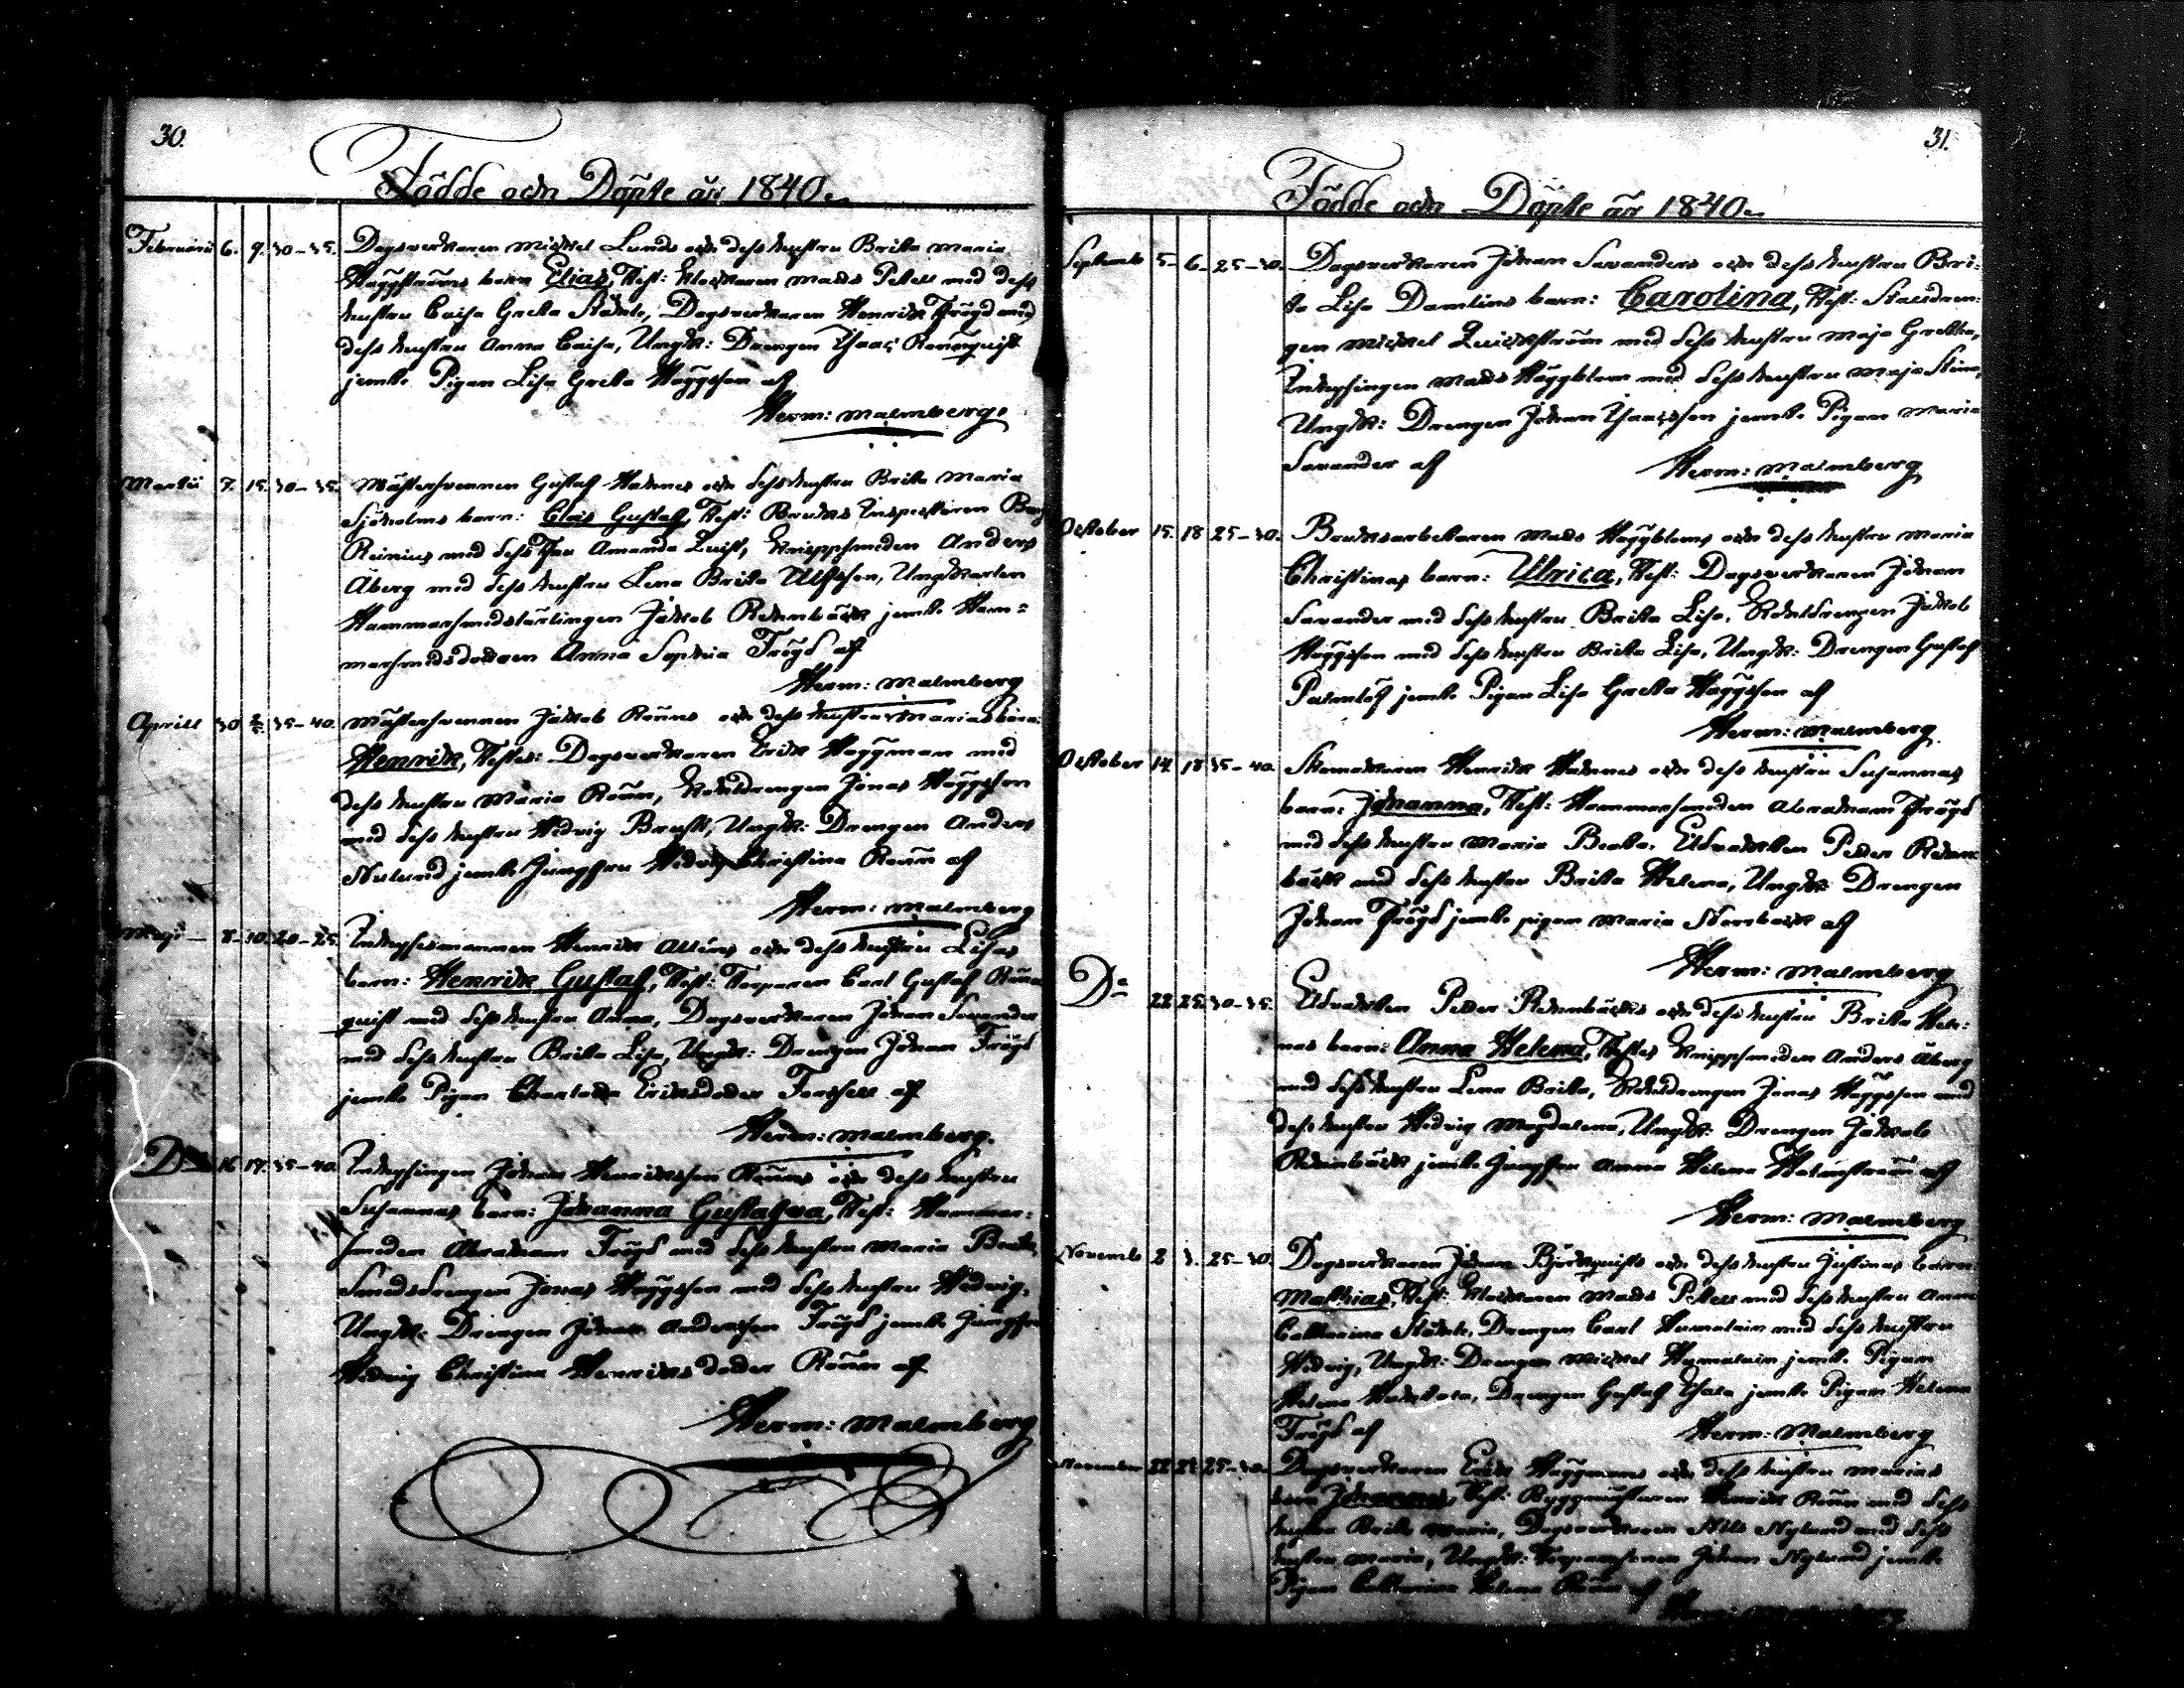 30.
Födde och Döpte år 1840.
Februarii 6. 9. 30-35. Dagsverkaren Mickel Lunds och dess hustru Brita Maria
Häggströms barn Elias, Test: Klockaren Matts Pettell med dess
hustru Caisa Greta Ståhle, Dagsverkaren Henrik Fröjd med
dess hustru Anna Caisa, Ungk: Drengen Isaac Rennquist
jemte Pigan Lisa Greta Häggson af
Herm: Malmberg.
Martii 7. 15. 30-35. Mästersvennen Gustaf och dess hustru Brita Maria
Sjöholms barn: Clais Gustaf, Test: Bruks Inspectoren
Reinius med dess Fru Amanda Quist, Knippsmeden Anders
Åberg med dess hustru Lena Brita Ulfsson, Ungkarlen
Hammarsmedslärlingen Jakob Rehnbäck jemte Ham=
marsmedsdottren Anna Sophia Fröjd af
Herm: Malmberg
Aprill 30 35-40. Mästersvennen Jakob Rönns och dess hustru Marias barn:
Henrik, Testes: Dagsverkaren Erik Häggman med
dess hustru Maria Rönn, Jonas Häggson
med dess hustru Hedvig Brusk, Ungk: Drengen Anders
jemte Jungfru Hedvig Christina Rönn af
Herm: Malmberg
Maji 8. 10. 20-25. Henrik och dess hustru Lisas
barn: Henrik Gustaf, Test: Torparen Carl Gustaf Rönn
quist med dess hustru Anna, Dagsverkaren Johan Savander
med dess hustru Brita Lisa, Ungk: Drengen Johan Fröjd
jemte Pigan Charlotta Eriksdotter Forssell af
Herm: Malmberg.
Do 16 17. 35-40. Inhysingen Johan Henriksson Rönns och dess hustru
Susannas barn: Johanna Gustafva, Test: Hammar:
smeden Abraham Fröjd med dess hustru Maria Beata,
Smedsdrengen Jonas Häggson med dess hustru Hedvig,
Ungk: Drengen Johan Andersson Fröjd jemte Jungfru
Hedvig Christina Henriksdotter Rönn af
Herm: Malmberg
31.
Födde och Döpte år 1840.
Septemb 5. 6. 25-30. Dagsverkaren Johan Savanders och dess hustru Bri:
ta Lisa Damlins barn: Carolina, Test: Stalldren:
gen Mickel Quickström med dess hustru Maja Greta,
Inhysingen Matts Häggblom med dess hustru Maja Stina,
Ungk: Drengen Johan Isaacsson jemte Pigan Maria
Savander af Herm: Malmberg
October 15. 18 25-30. Bruksarbetaren Matts Häggbloms och dess hustru Maria
Christinas barn: Ulrica, Test: Dagsverkaren Johan
Savander med dess hustru Brita Lisa, Jakob
Häggson med dess hustru Brita Lisa, Ungk: Drengen Gustaf
Palmlöf jemte Pigan Lisa Greta Häggson af
Herm: Malmberg
October 14. 18 35-40. Skomakaren Henrik och dess hustru Susannas
barn: Johanna, Test: Hammarsmeden Abraham Fröjd
med dess hustru Maria Beata, Petter Rehn:
bäck med dess hustru Brita Helena, Ungk: Drengen
Johan Fröjd jemte pigan Maria af
Herm: Malmberg
Do 22 25. 30-35. Petter Rehnbäcks och dess hustru Brita Hele:
nas barn: Anna Helena, Testes Knippsmeden Anders Åberg
med dess hustru Lena Brita, Jonas Häggson med
dess hustru Hedvig Magdalena, Ungk: Drengen Jakob
Rehnbäck jemte Jungfru Anna Helena Holmström af
Herm: Malmberg
Novemb 2 3. 25-30. Dagsverkaren Johan Björkquists och dess hustru Justinas barn:
Mathias, Test: Klockaren Matts Pettell med dess hustru Anna
Catharina Ståhle, Drengen Carl med dess hustru
Hedvig, Ungk: Drengen Mickel jemte Pigan
Helena Drengen Gustaf jemte Pigan Helena
Fröjd af Herm: Malmberg
November 22 25-30. Dagsverkaren Erik Häggmans och dess hustru Marias
barn Test: Byggmästaren Henrik Rönn med dess
hustru Brita Maria, Dagsverkaren Nils Nylund med dess
hustru Maria, Ungk: Johan Nylund jemte
Pigan Catharina Helena Rönn af
Herm: Malmberg